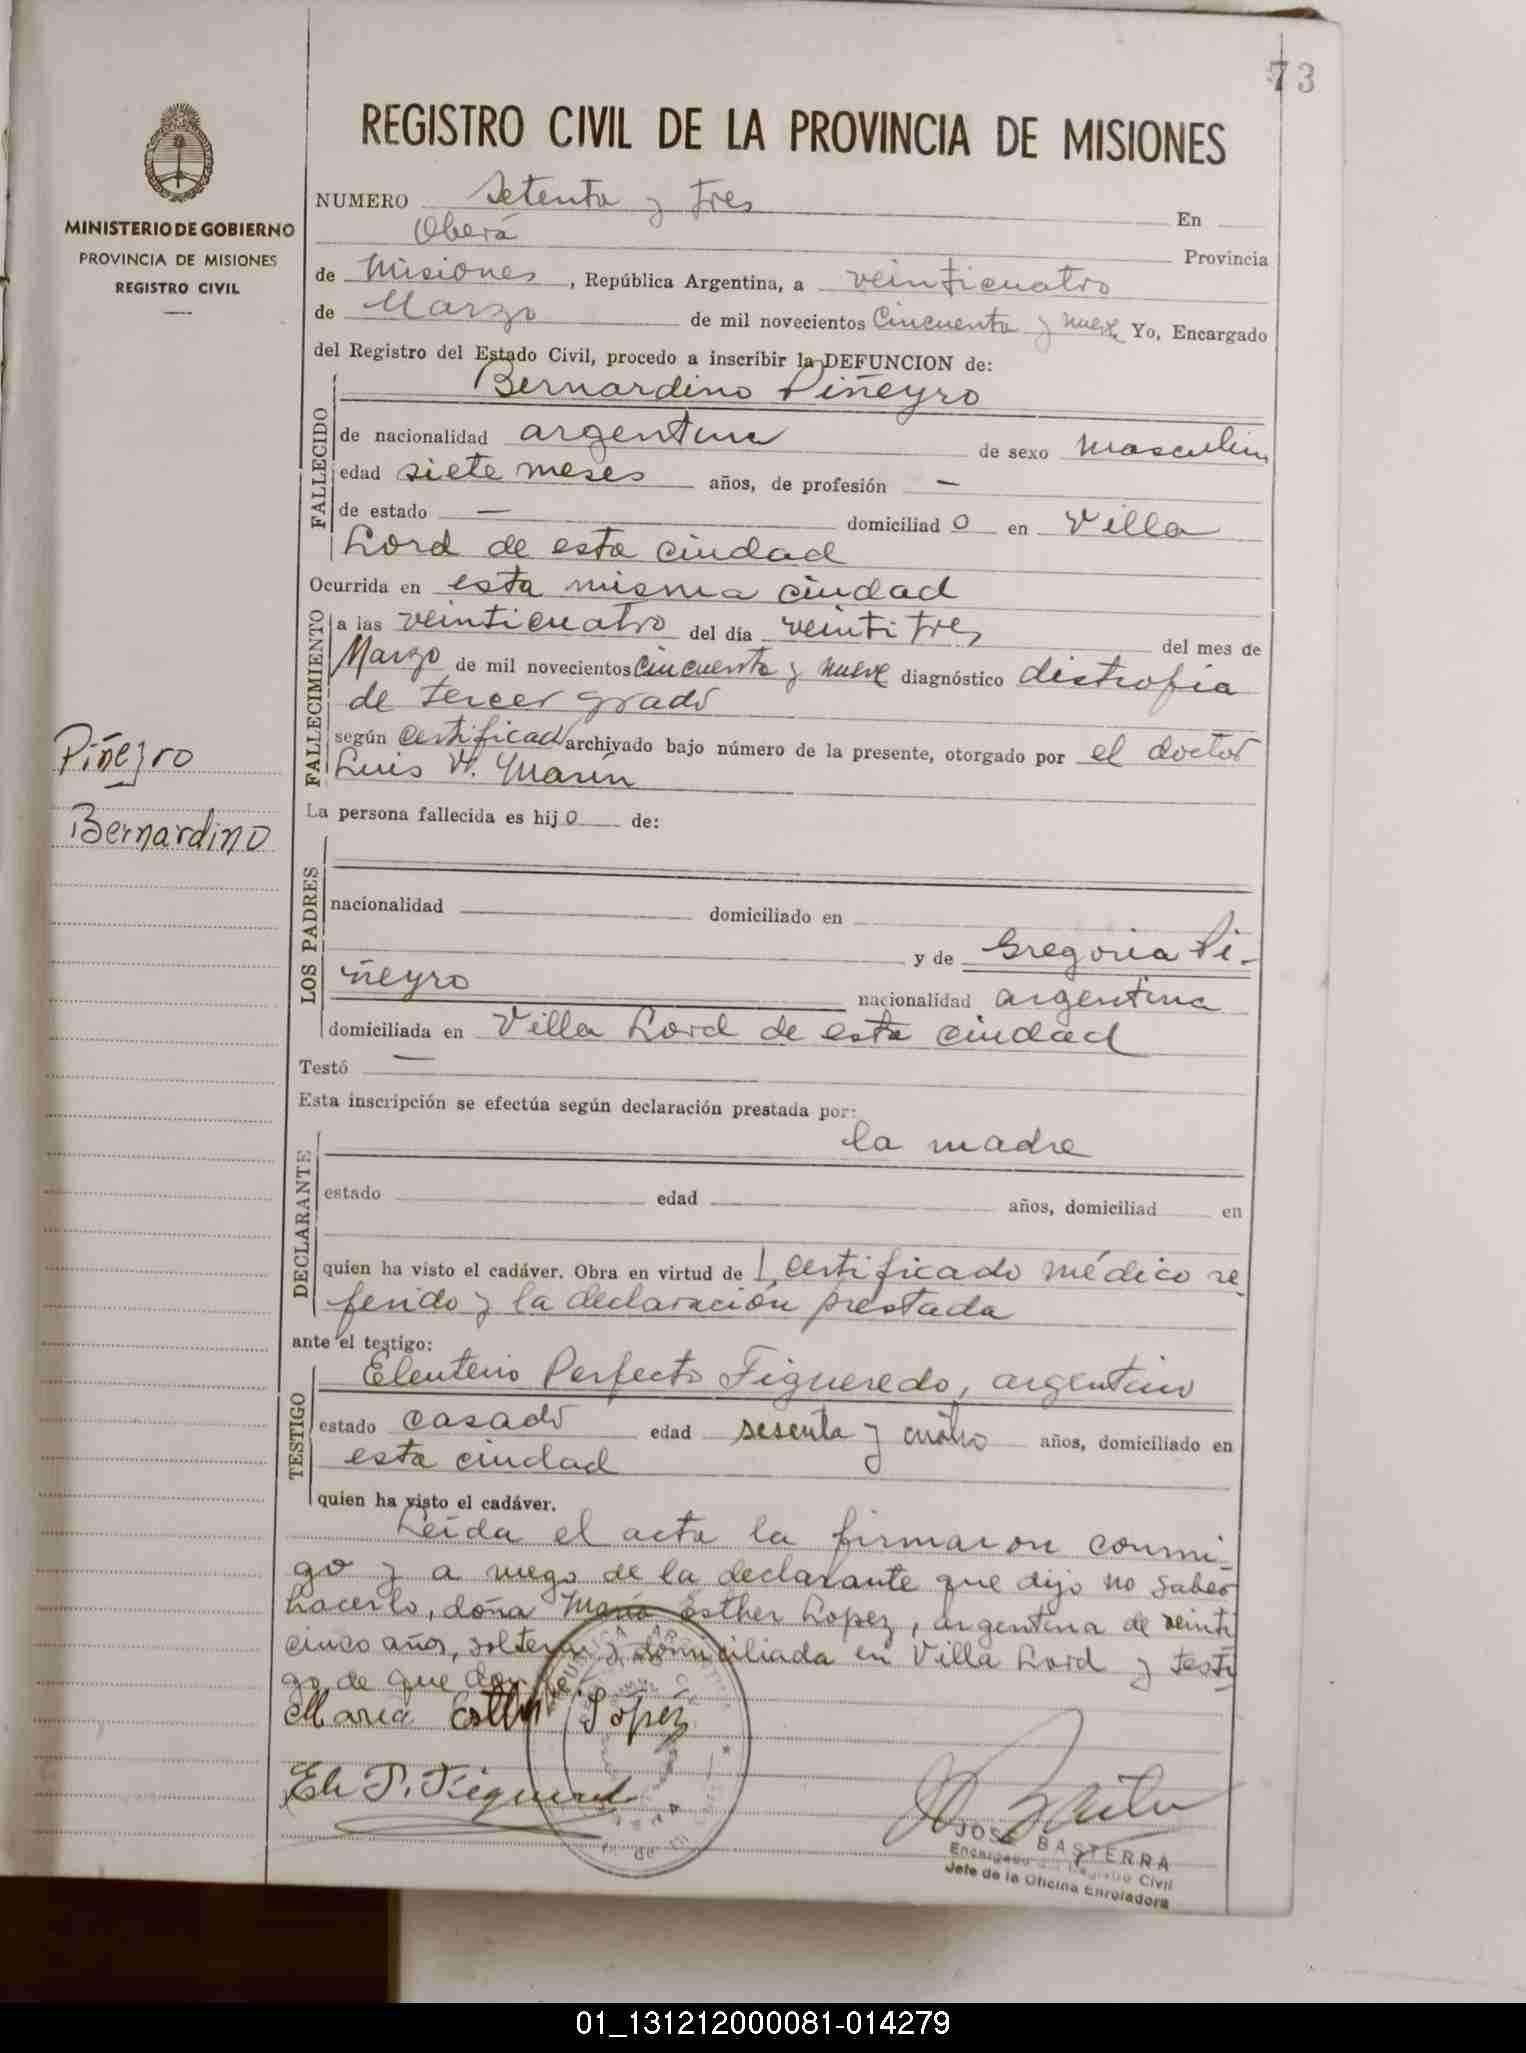 73
REGISTRO CIVIL DE LA PROVINCIA DE MISIONES
MINISTERIO DE GOBIERNO
PROVINCIA DE MISIONES
REGISTRO CIVIL
NUMERO Setenta y tres En
Oberá Provincia
de Misiones, República Argentina, a veinticuatro
de Marzo de mil novecientos Cincuenta y nueve Yo, Encargado
del Registro del Estado Civil, procedo a inscribir la DEFUNCION de:
FALLECIDO
Bernardino Piñeyro
de nacionalidad argentina de sexo masculin
edad siete meses años, de profesión —
de estado — domiciliad o en Villa
Lord de esta ciudad
Ocurrida en esta misma ciudad
FALLECIMIENTO
a las veinticuatro del día veintitres del mes de
Marzo de mil novecientos cincuenta y nueve diagnóstico distrofia
de tercer grado
según certificado archivado bajo número de la presente, otorgado por el doctor
Luis V. Marín
Piñeyro
Bernardino
La persona fallecida es hij o de:
LOS PADRES
nacionalidad domiciliado en
y de Gregoria Pi-
ñeyro nacionalidad argentina
domiciliada en Villa Lord de esta ciudad
Testó —
Esta inscripción se efectúa según declaración prestada por:
la madre
DECLARANTE
estado edad años, domiciliad en
quien ha visto el cadáver. Obra en virtud de l certificado médico re
ferido y la declaración prestada
ante el testigo:
TESTIGO
Eleuterio Perfecto Figueredo, argentino
estado casado edad sesenta y cuatro años, domiciliado en
esta ciudad
quien ha visto el cadáver.
Leída el acta la firmaron conmi-
go y a ruego de la declarante que dijo no saber
hacerlo, doña María Esther Lopez, argentina de veinti
cinco años, soltera y domiciliada en Villa Lord y testi
go de que doy
Maria Esther Lopez
Ele P. Figueredo
JOSE BASTERRA
Encargado del Registro Civil
Jefe de la Oficina Enroladora
01_131212000081-014279